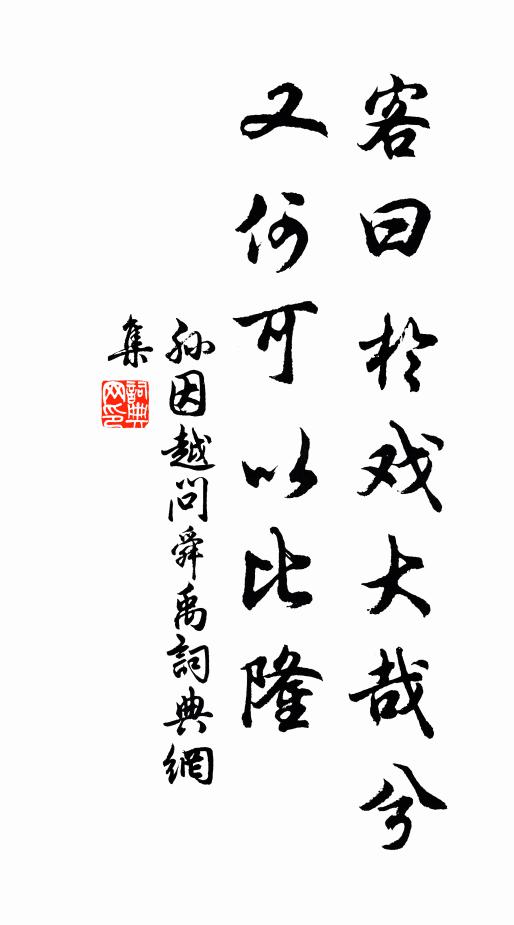 客曰於戏大哉兮
又何可以比隆
孙因越问舜禹詞典網
集
詞典網印